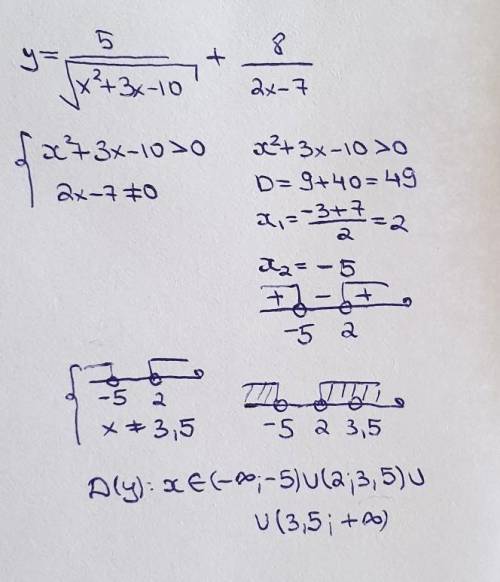 y = 5/√(x²+3x-10) + 8/(2x-7)
{ x²+3x-10>0
2x-7≠0
x²+3x-10>0
D=9+40=49
x₁=(-3+7)/2=2
x₂=-5
+ - +
-5 2
{ -5 2
x≠3,5
-5 2 3,5
D(y): x∈(-∞;-5)∪(2;3,5)∪
∪(3,5;+∞)